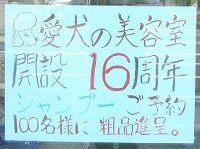 愛犬の美容室
開設 16周年
シャンプーご予約
100名様に 粗品進呈。